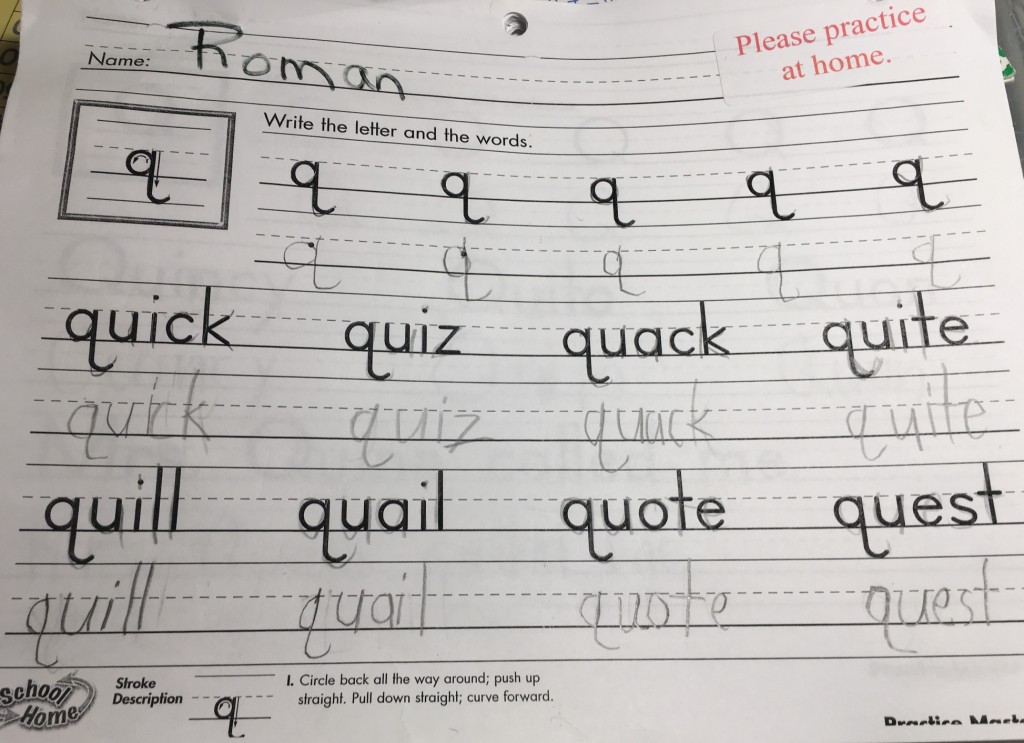 Please practice
at home.
Name: Roman
Write the letter and the words.
q
q q q q q
q q q q q
quick quiz quack quite
quick quiz quack quite
quill quail quote quest
quill quail quote quest
School
Home
Stroke
Description
q
1. Circle back all the way around; push up
straight. Pull down straight; curve forward.
Practice